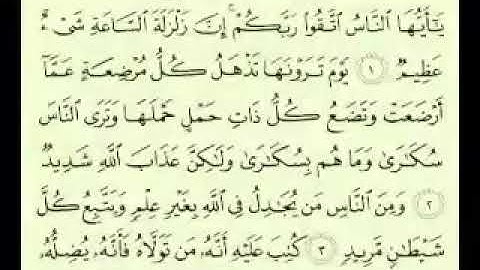 يَـٰٓأَيُّهَا ٱلنَّاسُ ٱتَّقُوا۟ رَبَّكُمْ ۚ إِنَّ زَلْزَلَةَ ٱلسَّاعَةِ شَىْءٌ
عَظِيمٌ ١ يَوْمَ تَرَوْنَهَا تَذْهَلُ كُلُّ مُرْضِعَةٍ عَمَّآ
أَرْضَعَتْ وَتَضَعُ كُلُّ ذَاتِ حَمْلٍ حَمْلَهَا وَتَرَى ٱلنَّاسَ
سُكَـٰرَىٰ وَمَا هُم بِسُكَـٰرَىٰ وَلَـٰكِنَّ عَذَابَ ٱللَّهِ شَدِيدٌ
٢ وَمِنَ ٱلنَّاسِ مَن يُجَـٰدِلُ فِى ٱللَّهِ بِغَيْرِ عِلْمٍ وَيَتَّبِعُ كُلَّ
شَيْطَـٰنٍ مَّرِيدٍ ٣ كُتِبَ عَلَيْهِ أَنَّهُۥ مَن تَوَلَّاهُ فَأَنَّهُۥ يُضِلُّهُۥ